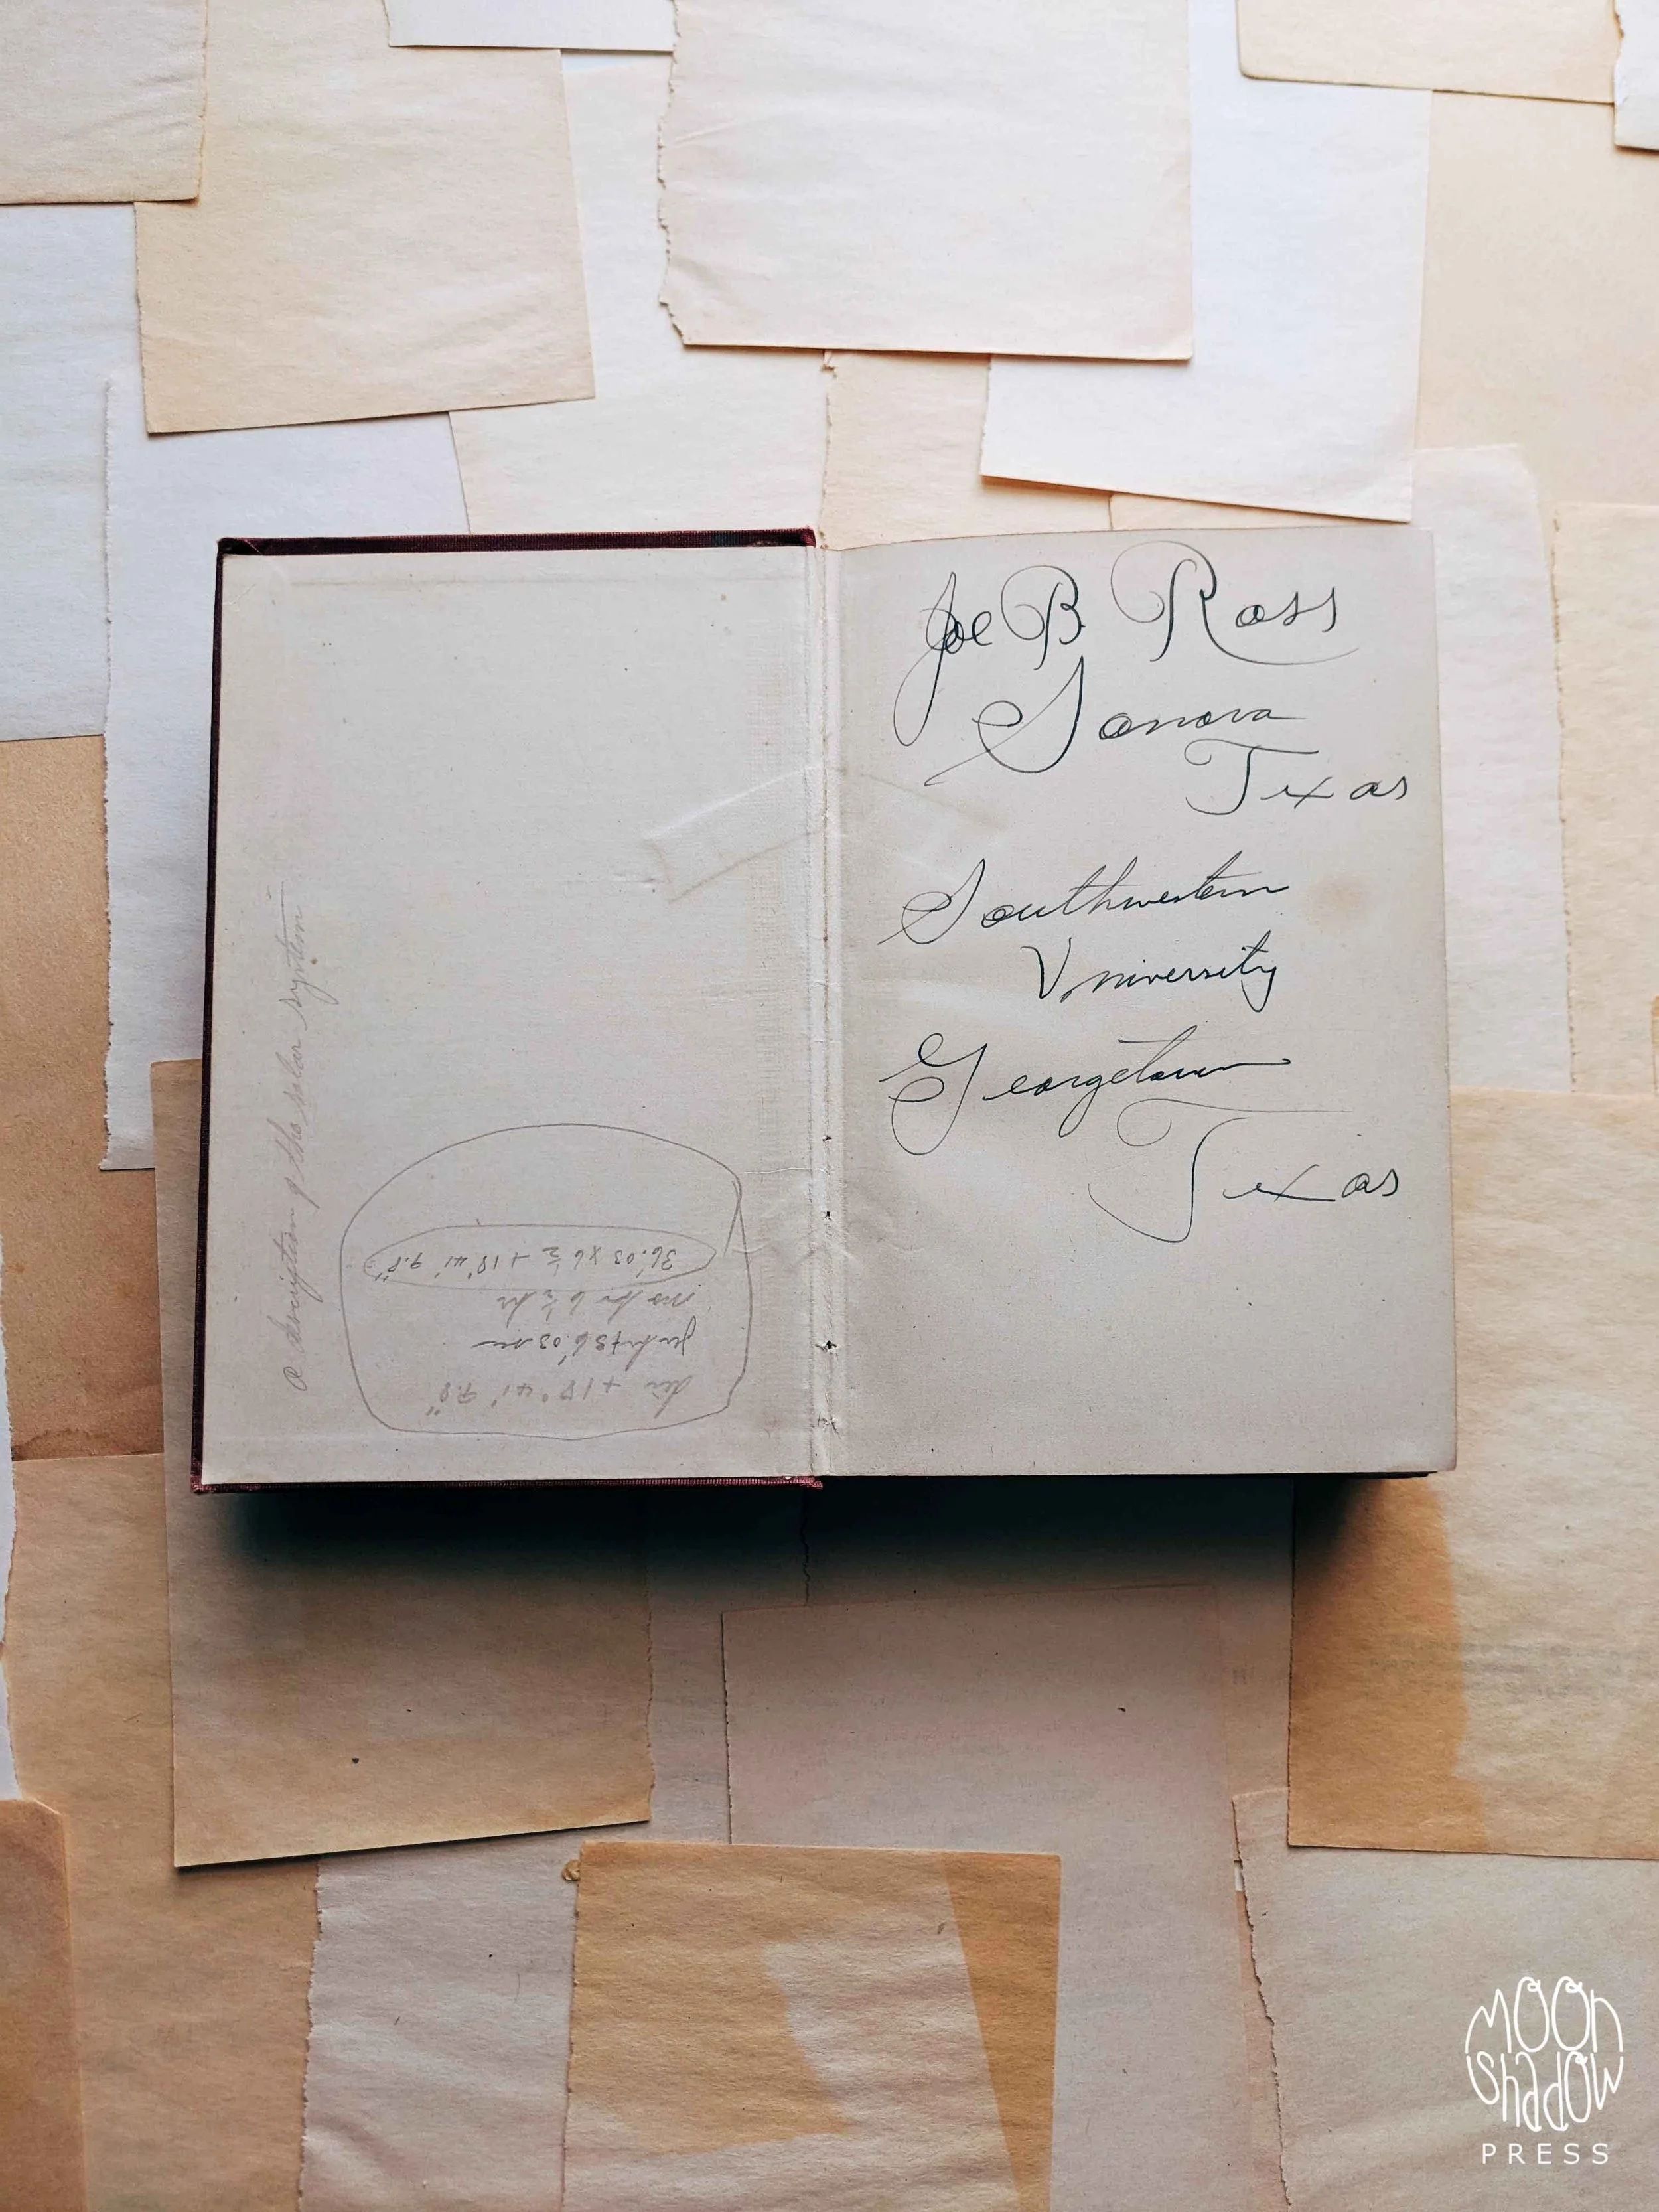 a description of the solar system
36.03 x 6 1/2 + 18° 41' 9.8"
6 1/2 hr
36.03 sec
dec + 18° 41' 9.8"
Joe B Ross
Sonora
Texas
Southwestern
University
Georgetown
Texas
MOON
SHADOW
PRESS